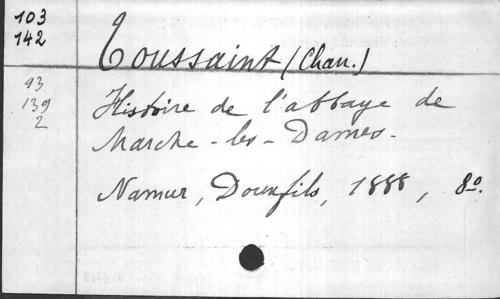 103
142
Toussaint (Chan.)
93
139
2
Histoire de l'abbaye de
Marche-les-Dames.
Namur, Douxfils, 1888, 8o.